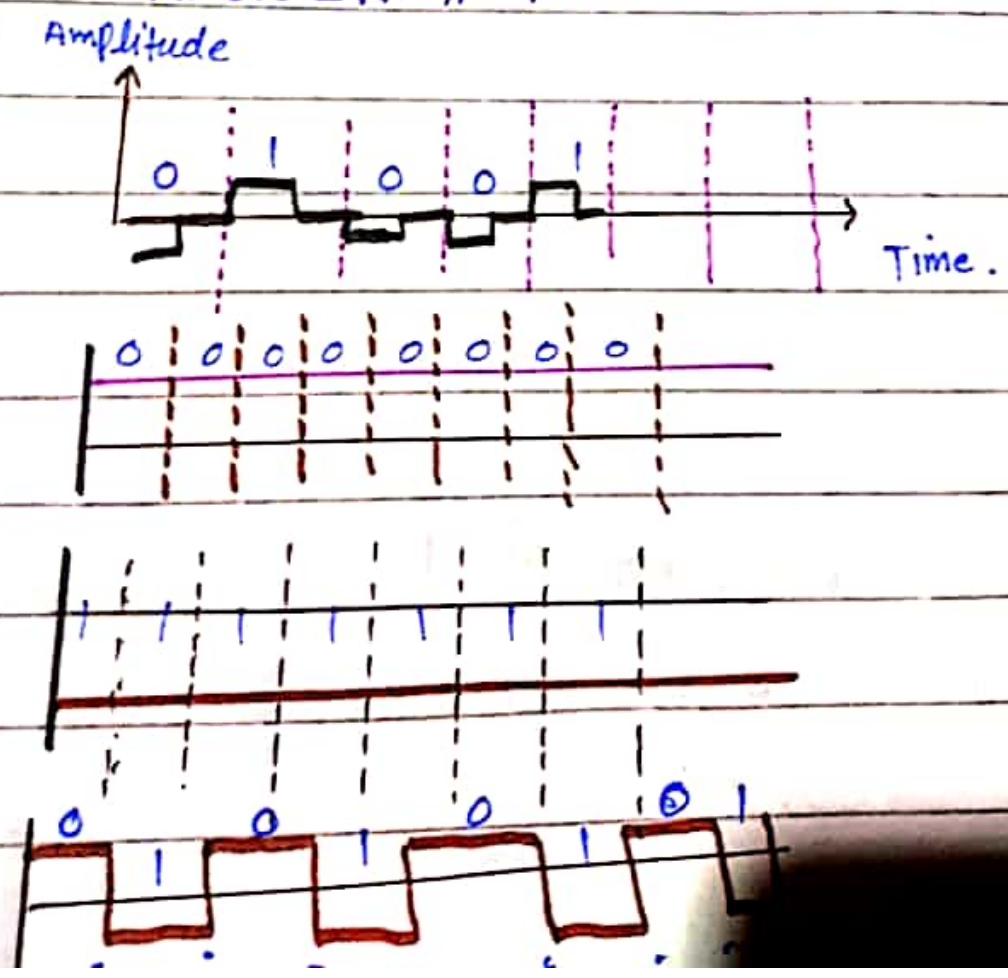 Amplitude
0 1 0 0 1
Time.
0 0 0 0 0 0 0 0
1 1 1 1 1 1 1
0 1 0 1 0 1 0 1